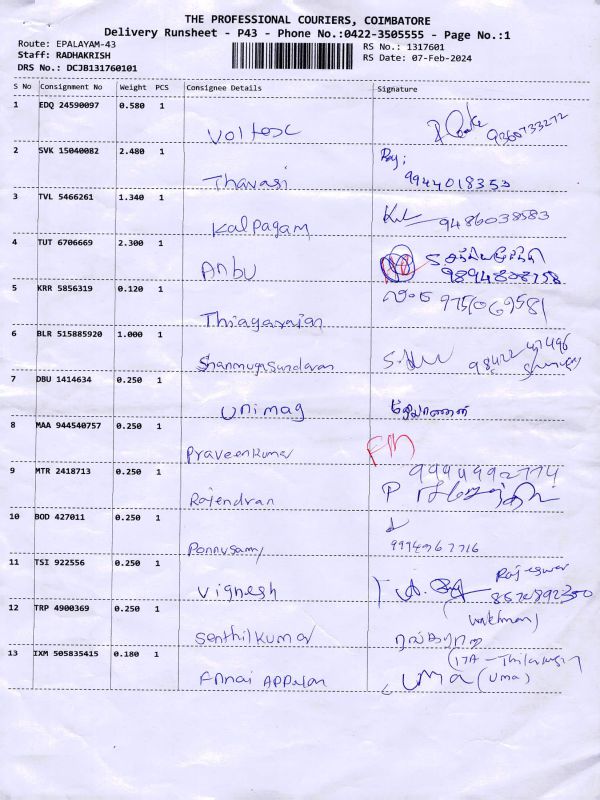 THE PROFESSIONAL COURIERS, COIMBATORE
Delivery Runsheet - P43 - Phone No.:0422-3505555 - Page No.:1
Route: EPALAYAM-43 RS No.: 1317601
Staff: RADHAKRISH RS Date: 07-Feb-2024
DRS No.: DCJB131760101
S No Consignment No Weight PCS Consignee Details Signature
1 EDQ 24590097 0.580 1
Voltesc 9360733272
2 SVK 15040082 2.480 1 Raj;
Thavasi 9944018353
3 TVL 5466261 1.340 1
Kalpagam 9486038583
4 TUT 6706669 2.300 1
Anbu 9894808758
5 KRR 5856319 0.120 1
Thiagarajan 9751069581
6 BLR 515885920 1.000 1
Shanmugasundaran 98422 47496
7 DBU 1414634 0.250 1
Unimag
8 MAA 944540757 0.250 1
Praveenkumar
9 MTR 2418713 0.250 1 9994992774
Rajendran P
10 BOD 427011 0.250 1
Ponnusamy
11 TSI 922556 0.250 1 Rajeswar
Vignesh
12 TRP 4900369 0.250 1 (watchman)
Senthilkumar
13 IXM 505835415 0.180 1
Annai Appalan Uma (Uma)